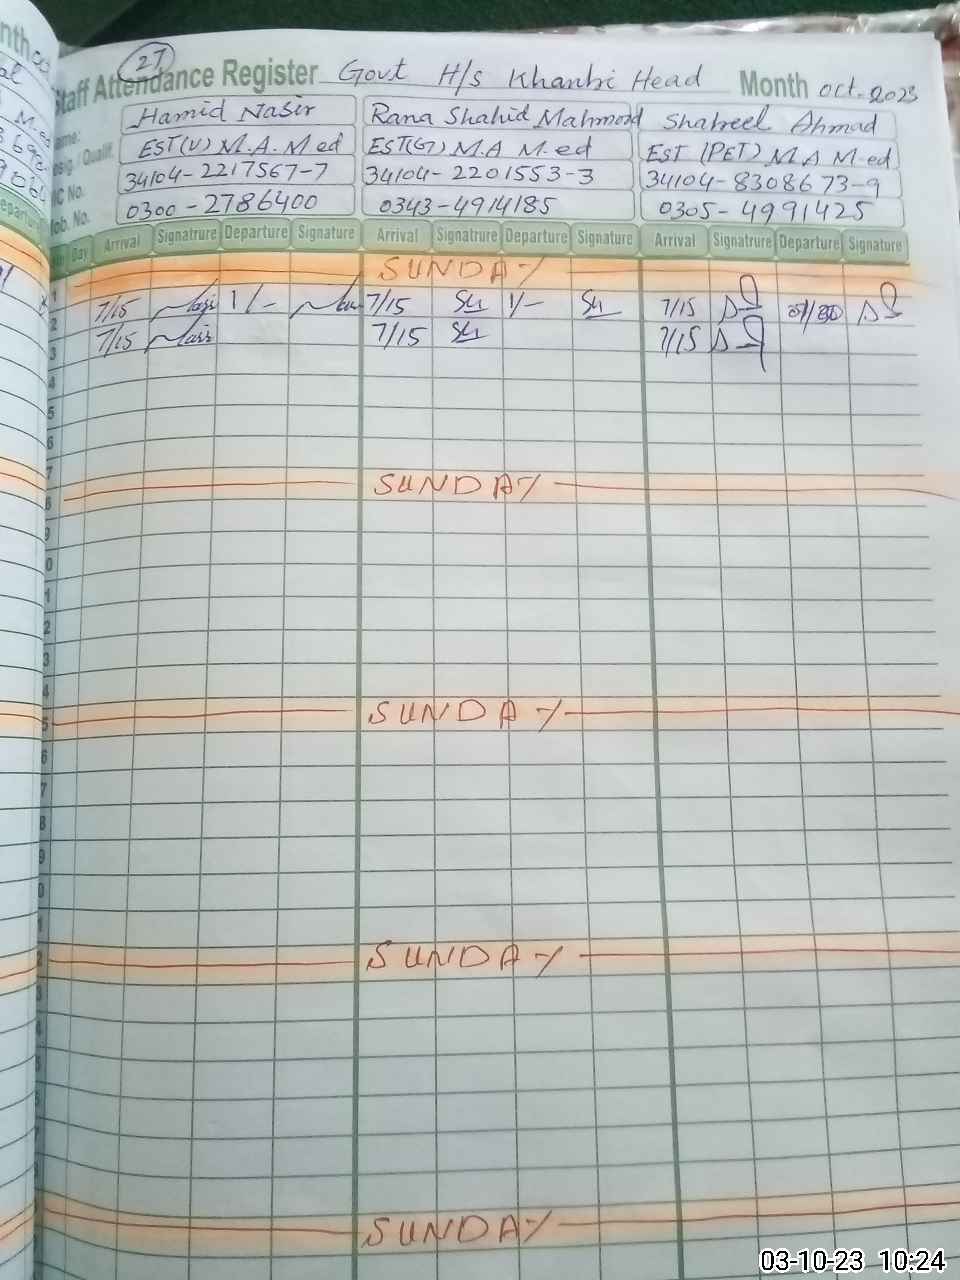 27
Staff Attendance Register Govt H/s Khanki Head Month Oct-2023
Hamid Nasir Rana Shahid Mahmood Shabeel Ahmad
Desig./Qualif. EST(U) M.A. M.ed EST(G) M.A M.ed EST (PET) M.A M.ed
NIC No. 34104-2217567-7 34104-2201553-3 34104-8308673-9
Mob. No. 0300-2786400 0343-4914185 0305-4991425
Day Arrival Signatrure Departure Signature Arrival Signatrure Departure Signature Arrival Signatrure Departure Signature
1 SUNDAY
2 7/15 1/- 7/15 1/- 7/15
3 7/15 7/15 7/15
4
5
6
7
8 SUNDAY
9
0
1
2
3
4
5 SUNDAY
6
7
8
9
0
1
2 SUNDAY
SUNDAY
03-10-23 10:24